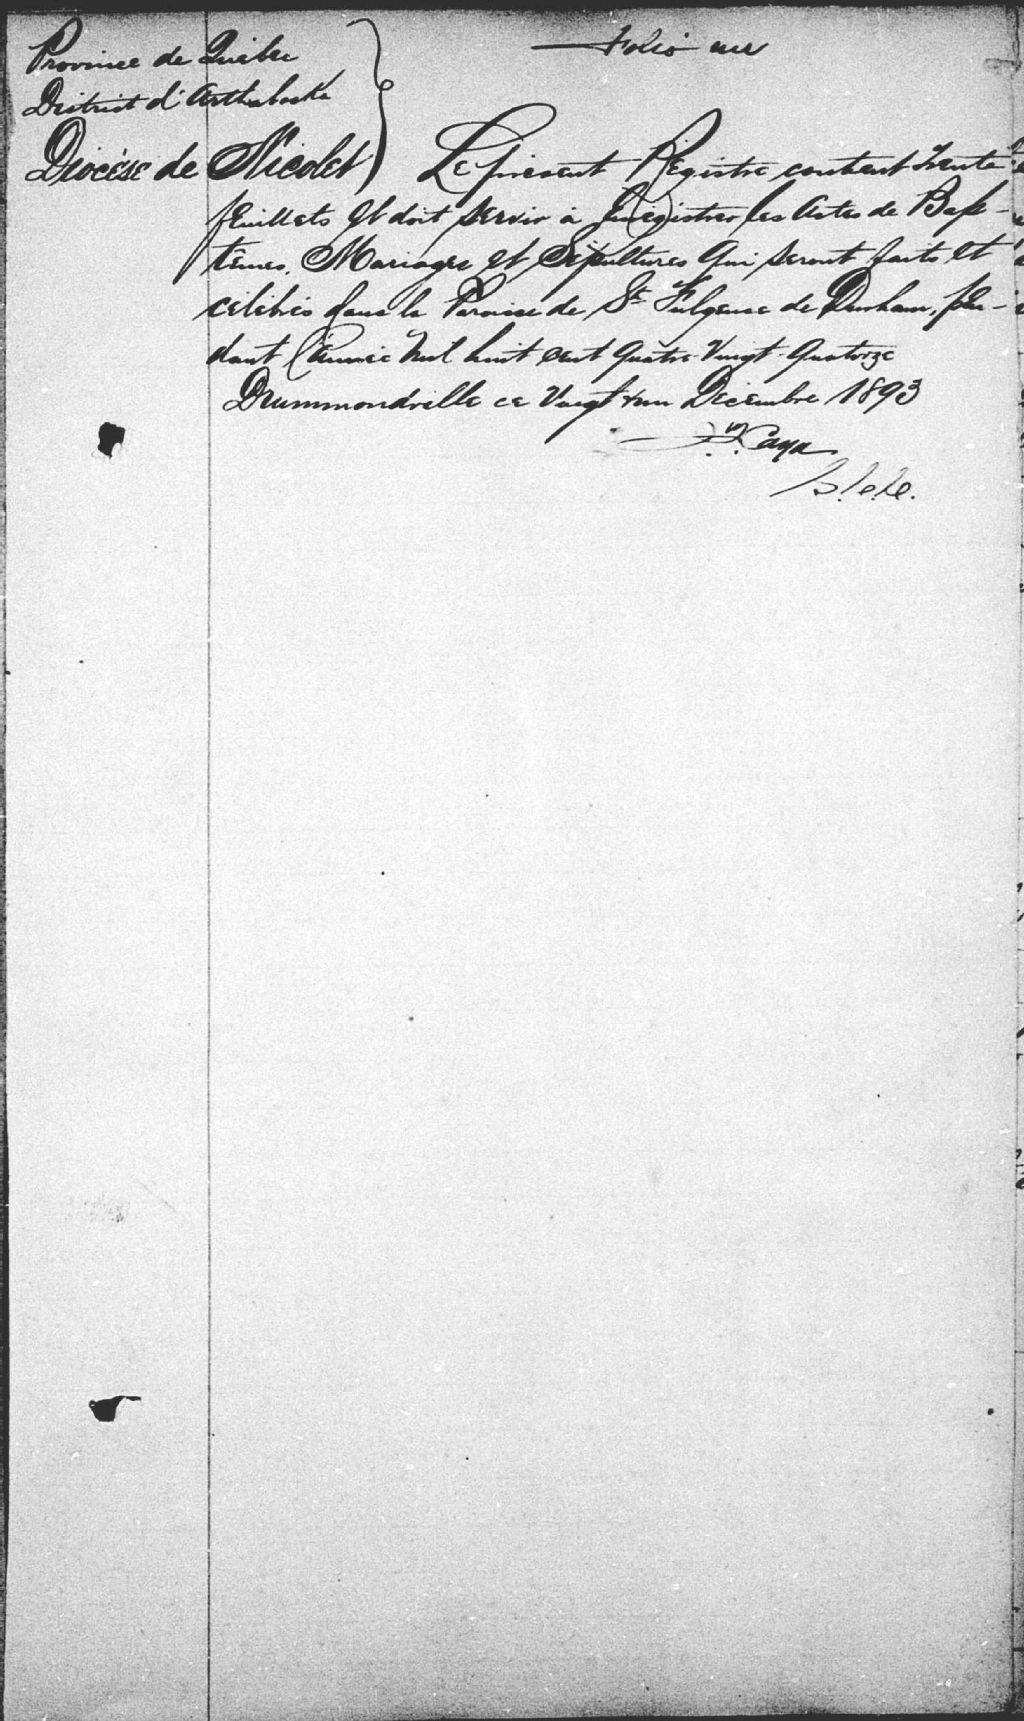 Folio un
Province de Québec
District d'Arthabaska
Diocèse de Nicolet
Le présent Régistre contient trente
feuillets et doit servir à Enrégistrer les Actes de Bap-
têmes, Mariages et Sépultures qui seront faits et
célébrés dans la Paroisse de St Fulgence de Durham, pen-
dant l'année mil huit cent quatre-vingt-quatorze
Drummondville ce vingt un Décembre 1893
Caya